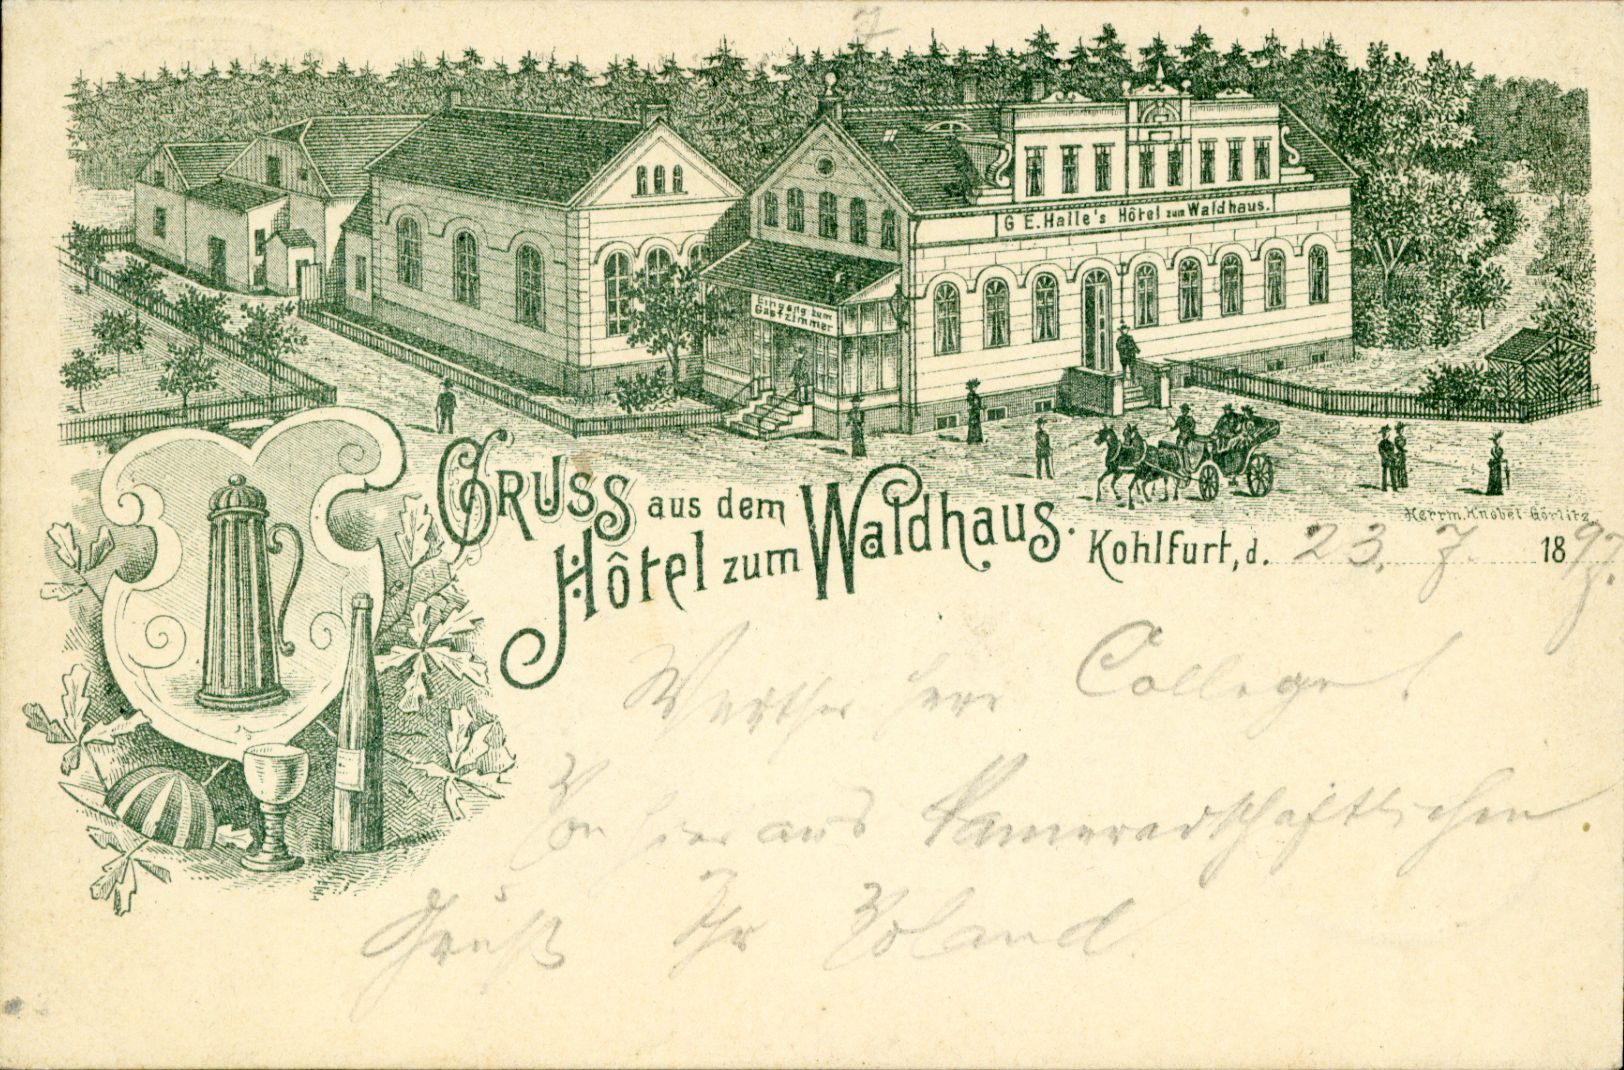 7
G. E. Halle's Hôtel zum Waldhaus.
Eingang zum
Gastzimmer
Herrm. Knobel Görlitz
Gruss aus dem
Hôtel zum Waldhaus.
Kohlfurt, d. 23. 7. 1897.
Werther Herr College!
Von hier aus kameradschaftlichen
Gruß Ihr Roland